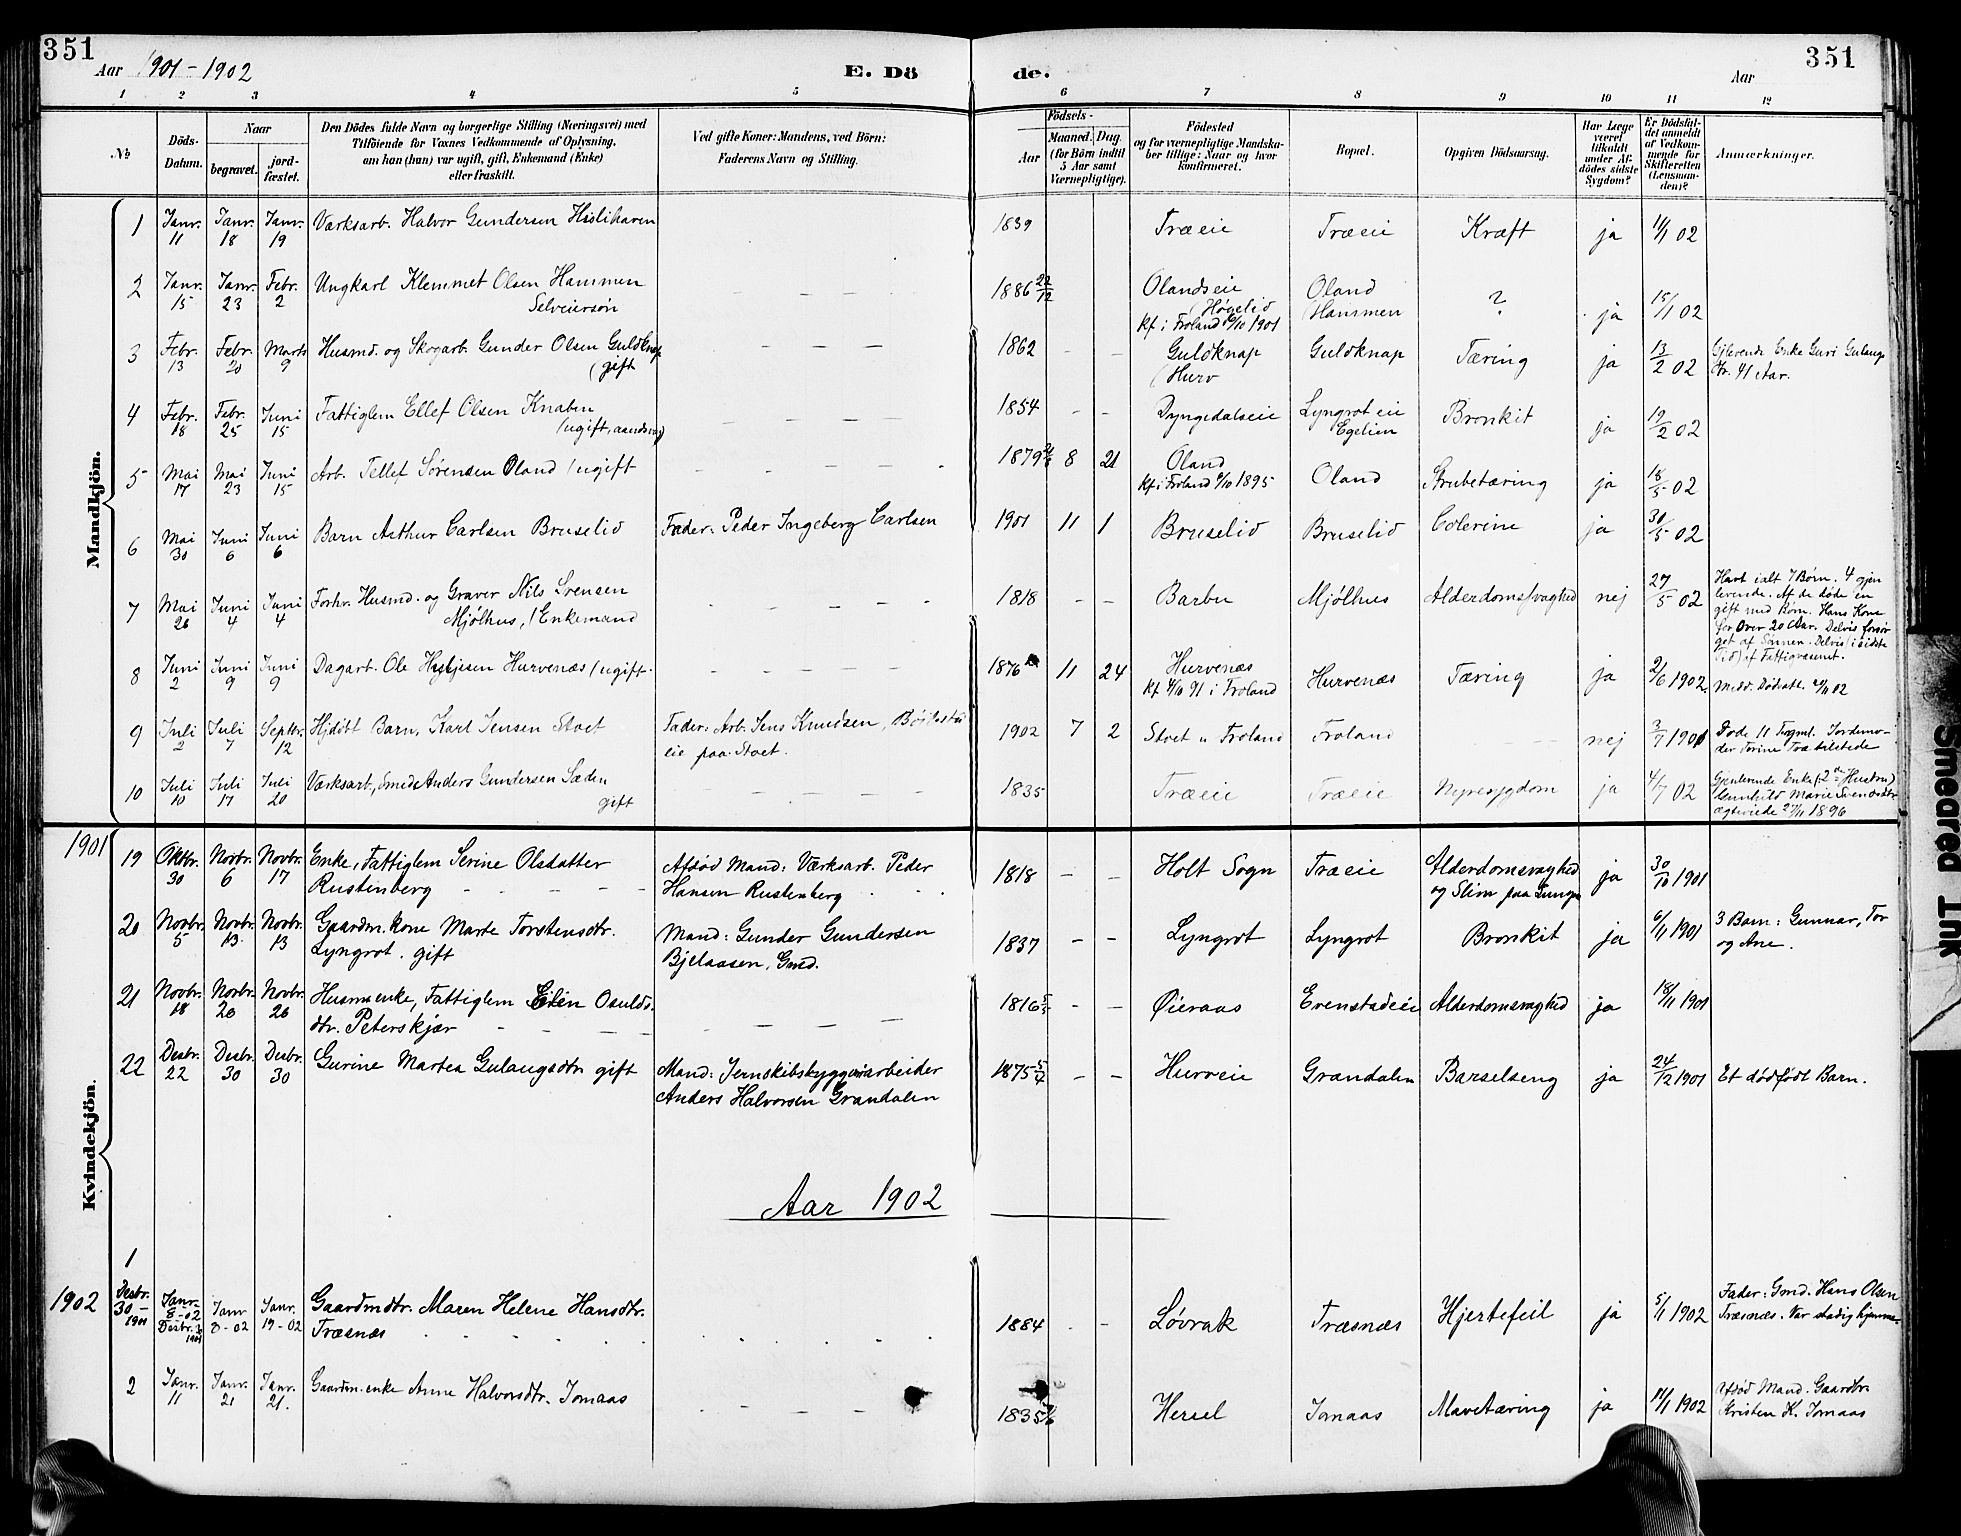 351
Aar 1901-1902
E. Dö
de.
Aar
351
1 2 3 4 5 6 7 8 9 10 11 12
No
Döds-Datum.
Naar
begravet.
jord-fæstet.
Den Dödes fulde Navn og borgerlige Stilling (Næringsvei) med
Tilföiende for Voxnes Vedkommende af Oplysning,
om han (hun) var ugift, gift, Enkemand (Enke)
eller fraskilt.
Ved gifte Koner: Mandens, ved Börn:
Faderens Navn og Stilling.
Födsels-
Aar
Maaned.
Dag.
(for Börn indtil
5 Aar samt
Værnepligtige).
Födested
og for værnepligtige Mandska-
ber tillige: Naar og hvor
konfirmeret.
Bopæl.
Opgiven Dödsaarsag.
Har Læge
været
tilkaldt
under Af-
dödes sidste
Sygdom?
Er Dödsfal-
det anmeldt
af Vedkom-
mende for
Skifteretten
(Lensman-
den)?
Anmærkninger.
Mandkjön.
1 Janr. 11 Janr. 18 Janr. 19 Værksarb. Halvor Gundersen Hislihaven 1839 Træeie Træeie Kræft ja 11/1 02
2 Janr. 15 Janr. 23 Febr. 2 Ungkarl Klemmet Olsen Hammen
Selveiersøn — — — 1886 22/12 Olandseie
Høgelid
kf. i Froland 6/10 1901 Oland
Hammen ? ja 15/1 02
3 Febr. 13 Febr. 20 Marts 9 Husmd. og Skogarb. Gunder Olsen Guldknap
(gift — — — 1862 - - Guldknap
(Hurv Guldknap Tæring ja 13/2 02 Gjlevende Enke Guri Gulaugs
dtr. 41 Aar.
4 Febr. 18 Febr. 25 Juni 15 Fattiglem Ellef Olsen Knaben
(ugift, aandssvag) — — — 1854 - - Dyngedalseie Lyngroteie
Egelien Bronkit ja 19/2 02
5 Mai 17 Mai 23 Juni 15 Arb. Tellef Sørensen Oland (ugift - - - - 1879 8 21 Oland
kf. i Froland 6/10 1895 Oland Strubetæring ja 18/5 02
6 Mai 30 Juni 6 Juni 6 Barn Arthur Carlsen Bruselid Fader: Peder Ingeberg Carlsen 1901 11 1 Bruselid Bruselid Colerine ja 30/5 02
7 Mai 26 Juni 4 Juni 4 Forhv. Husmd. og Graver Nils Svensen
Mjølhus, (Enkemand - - - - 1818 - - Barbu Mjølhus Alderdomssvaghed nej 27/5 02 Havt ialt 7 Børn. 4 gjen
levende. Af de døde en
gift med Børn. Hans Kone
for over 20 Aar. Delvis forsør
get af Sønnen. Delvis (i sidste
Tid) af Fattigvæsenet.
8 Juni 2 Juni 9 Juni 9 Dagarb. Ole Hurvenæs (ugift - 1876 11 24 Hurvenæs
kf. 4/10 91 i Froland Hurvenæs Tæring ja 2/6 1902.
9 Juli 2 Juli 7 Septbr. 12 Hjdøbt Barn, Karl Jensen Stoet Fader: Arb. Jens Knudsen,
eie paa Stoet. 1902 7 2 Stoet i Froland Froland — — nej 3/7 1901 Døde 11 Jordemo-
der Torine Træ tilstede
10 Juli 10 Juli 17 Juli 20 Værksarb., Smed Anders Gundersen Sæden
gift — — — — 1835 Træeie Træeie Nyresygdom ja 4/7 02 Gjenlevende Enke (2den Hustru)
Gunhild Marie Svensdtr.
ægteviede 27/11 1896
Kvindekjön.
1901
19 Oktbr. 30 Novbr. 6 Novbr. 17 Enke, Fattiglem Serine Olsdatter
Rustenberg - - - - Afdød Mand: Værksarb. Peder
Hansen Rustenberg 1818 - - Holt Sogn Træeie Alderdomssvaghed
og Slim paa Lunge ja 30/10 1901
20 Novbr. 5 Novbr. 13 Novbr. 13 Gaardm.kone Marte Torstensdtr.
Lyngrot. gift Mand: Gunder Gundersen
Bjelaasen, Gmd. 1837 - - Lyngrot Lyngrot Bronkit ja 6/11 1901 3 Barn: Gunnar, Tor
og Ane.
21 Novbr. 18 Novbr. 26 Novbr. 26 Husm.enke, Fattiglem Elen Osulds-
dtr. Peterskjær - - - - — — — 1816 5/5 - - Øieraas Evenstadeie Alderdomsvaghed ja 18/11 1901
22 Desbr. 22 Desbr. 30 Desbr. 30 Gurine Martea Gulaugsdtr. gift Mand: Jernskibsbyggeriarbeider
Anders Halvorsen Grandalen 1875 5/4 - - Hurveie Grandalen Barselseng ja 24/12 1901 Et dødfødt Barn.
Aar 1902
1902
1
Desbr.
30 -
1901 Janr.
8-02
Desbr.
1901 Janr.
8-02 Janr.
19-02 Gaardmdtr. Maren Helene Hansdtr.
Træsnæs 1884 - - Løvrak Træsnæs Hjertefeil ja 5/1 1902 Fader: Gmd. Hans Olsen
Træsnæs. Var stadig hjemme.
2 Janr. 11 Janr. 21 Janr. 21. Gaardm.enke Anne Halvorsdtr. Jomaas — — — 1835 Hersel Jomaas Mavetæring ja 14/1 1902 Afdød Mand. Gaardbr.
Kristen K. Jomaas
Smeared Ink